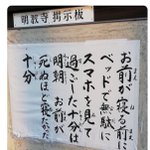 明教寺 掲示板
お前が寝る前に
ベッドで無駄に
スマホを見て
過ごした十分は
明朝 お前が
死ぬほど寝たかった
十分